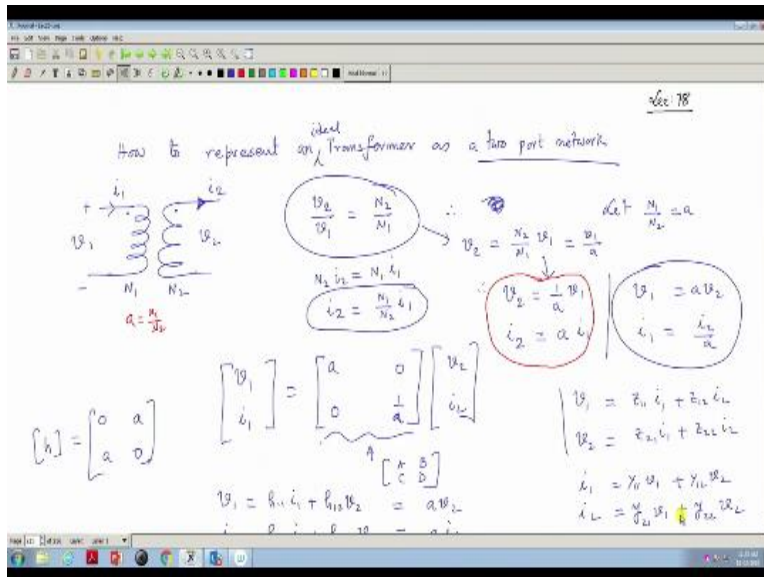 Lec: 78
How to represent an ideal Transformer as a two port network
i₁ i₂
+
v₁ v₂
-
N₁ N₂
a = N₁/N₂
v₂/v₁ = N₂/N₁
N₂ i₂ = N₁ i₁
i₂ = N₁/N₂ i₁
∴ Let N₁/N₂ = a
v₂ = N₂/N₁ v₁ = v₁/a
∴ v₂ = 1/a v₁
i₂ = a i₁
v₁ = a v₂
i₁ = i₂/a
[v₁ i₁] = [a 0 0 1/a] [v₂ i₂]
[A B C D]
[h] = [0 a a 0]
v₁ = z₁₁ i₁ + z₁₂ i₂
v₂ = z₂₁ i₁ + z₂₂ i₂
i₁ = y₁₁ v₁ + y₁₂ v₂
i₂ = y₂₁ v₁ + y₂₂ v₂
v₁ = h₁₁ i₁ + h₁₂ v₂ = a v₂